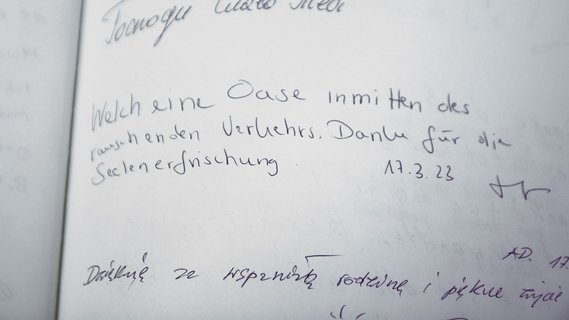 Господи
Welch eine Oase inmitten des
rauschenden Verkehrs. Danke für die
Seelenerfrischung 17.3.23
AD. 17.
Dziękuję za wspaniałą rodzinę i piękne życie